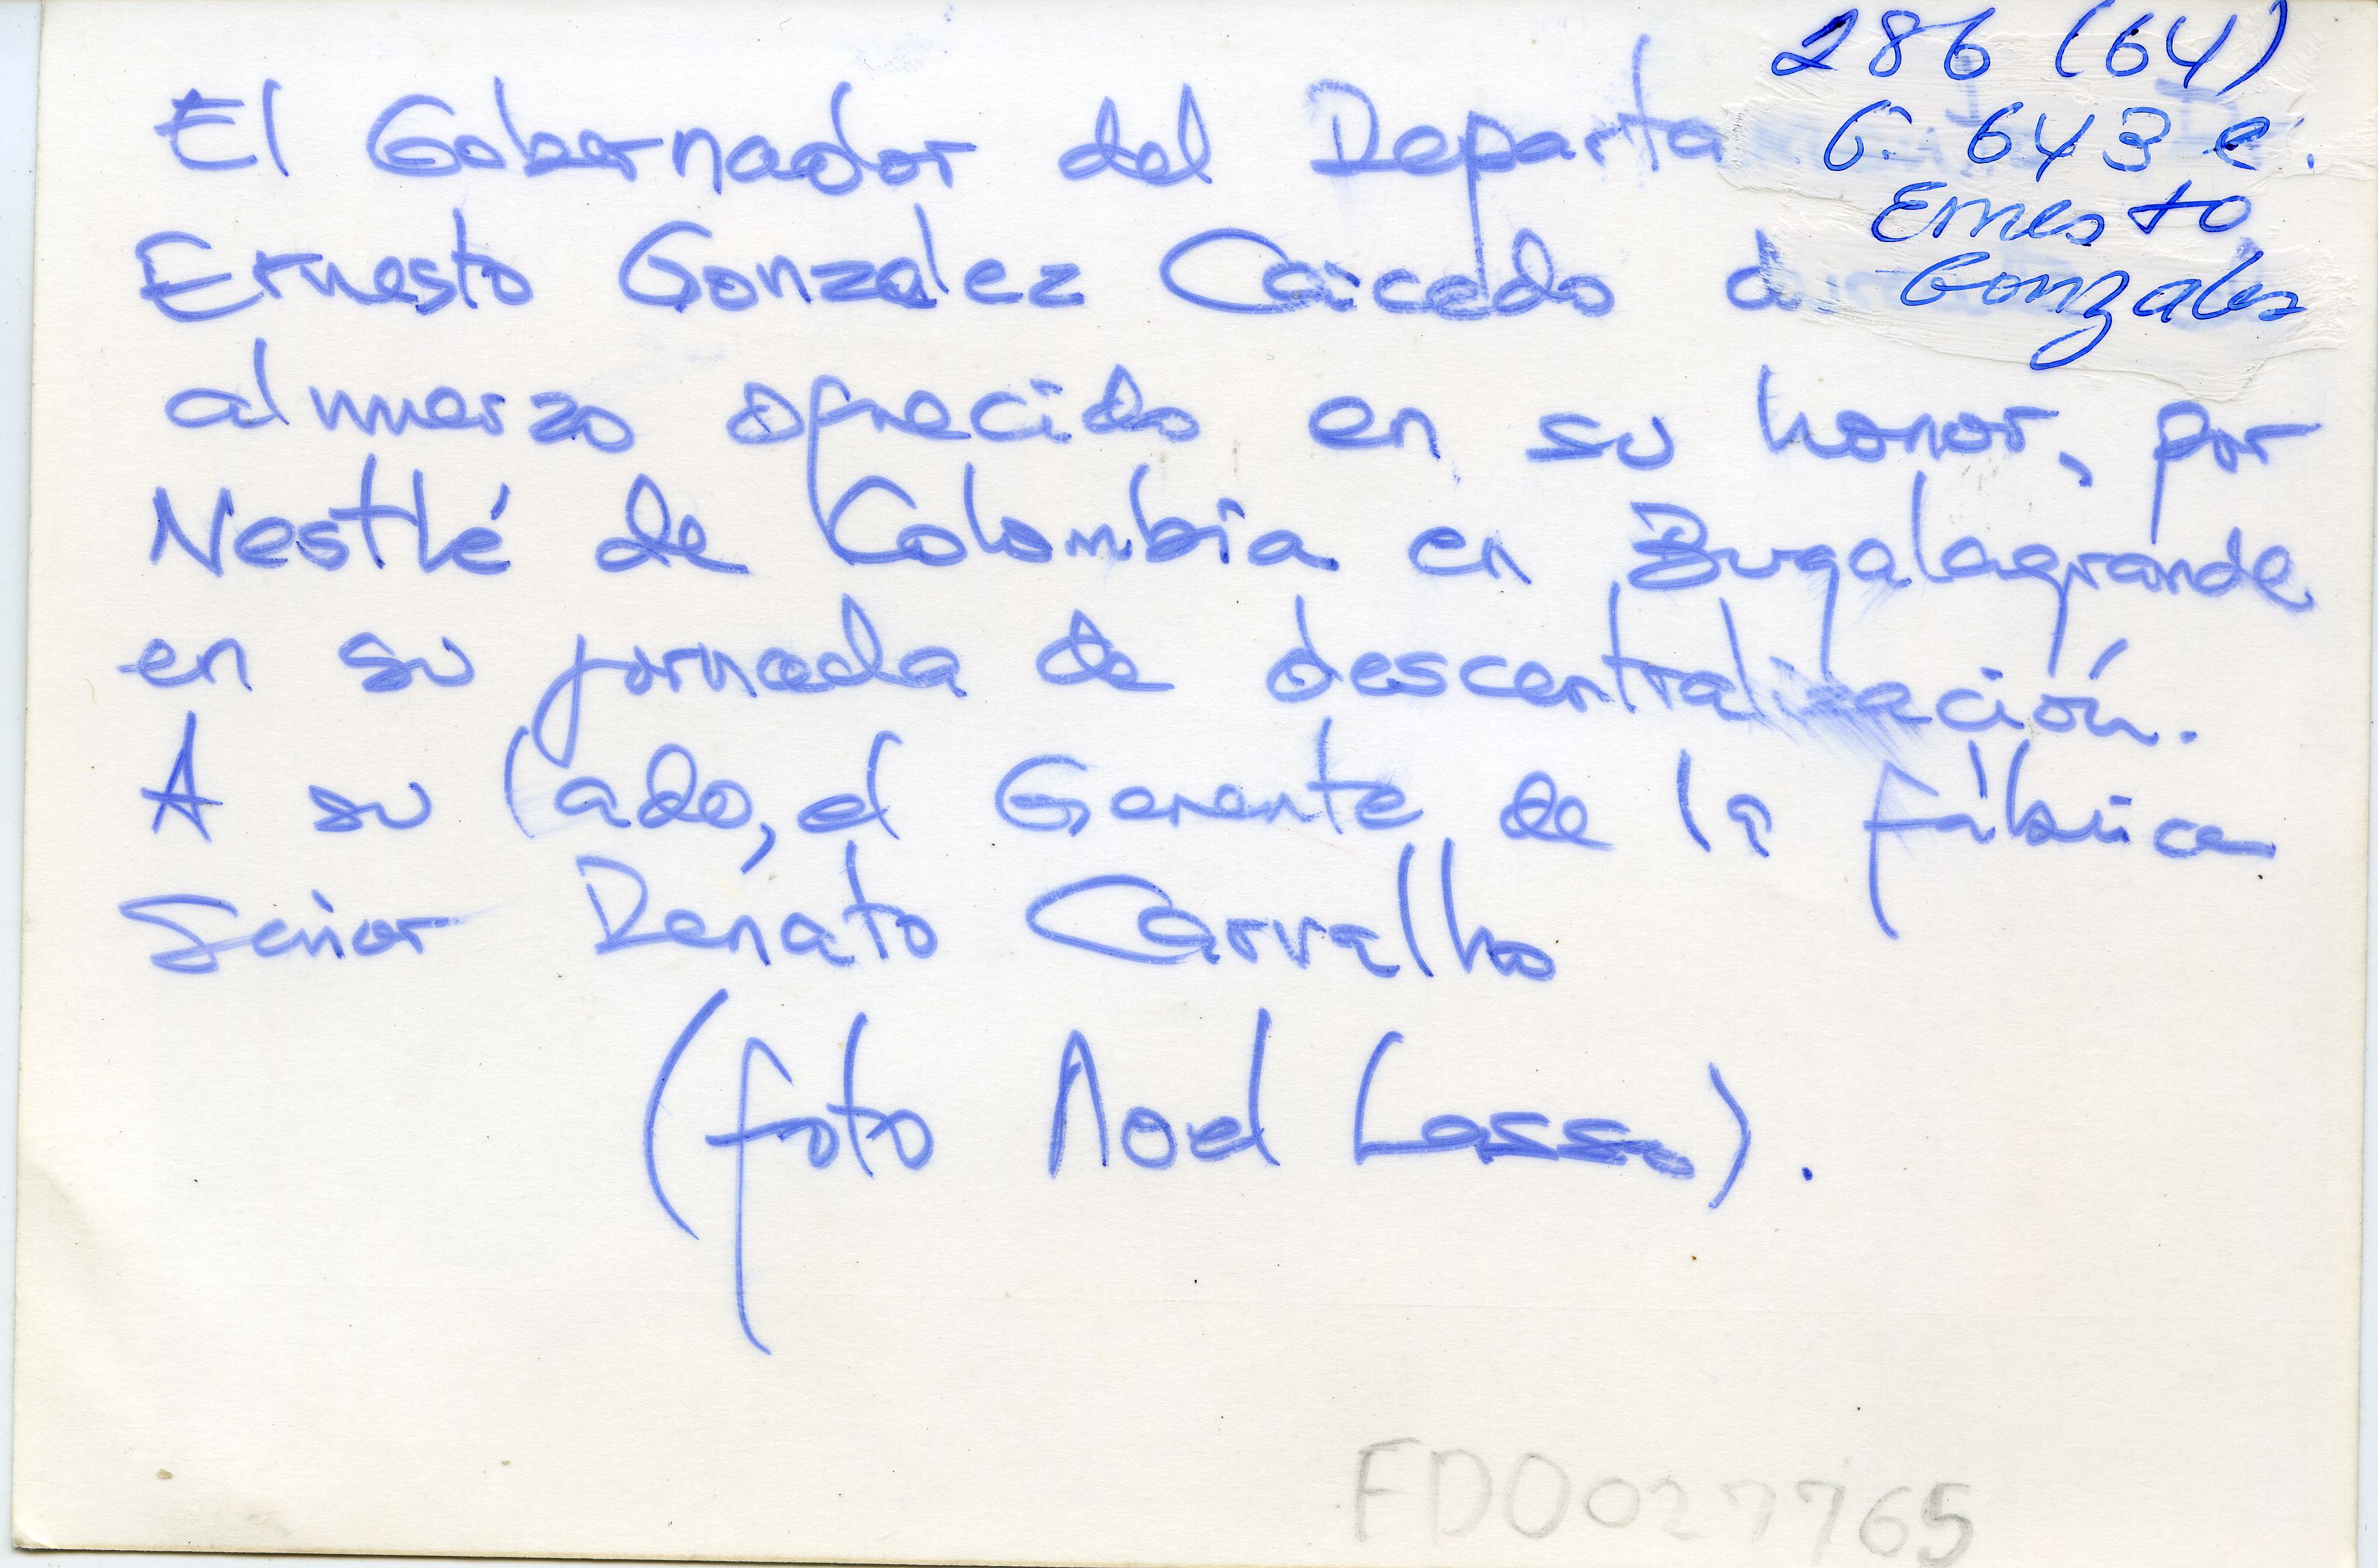 286 (64)
G 643 e.
Ernesto
Gonzales
El Gobernador del Departa
Ernesto Gonzalez Caicedo d
almuerzo ofrecido en su honor, por
Nestlé de Colombia en Bugalagrande
en su jornada de descentralización.
A su lado, el Gerente de la fábrica
Señor Renato Carvalho
(foto Noel Lasso).
FD0027765